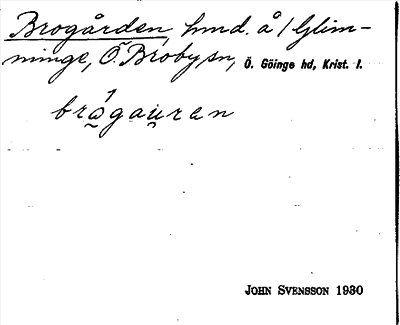 Brogården, hmd. å 1 Glim-
minge, Ö. Broby sn, Ö. Göinge hd, Krist. l.
brǻgau̯ran
JOHN SVENSSON 1930